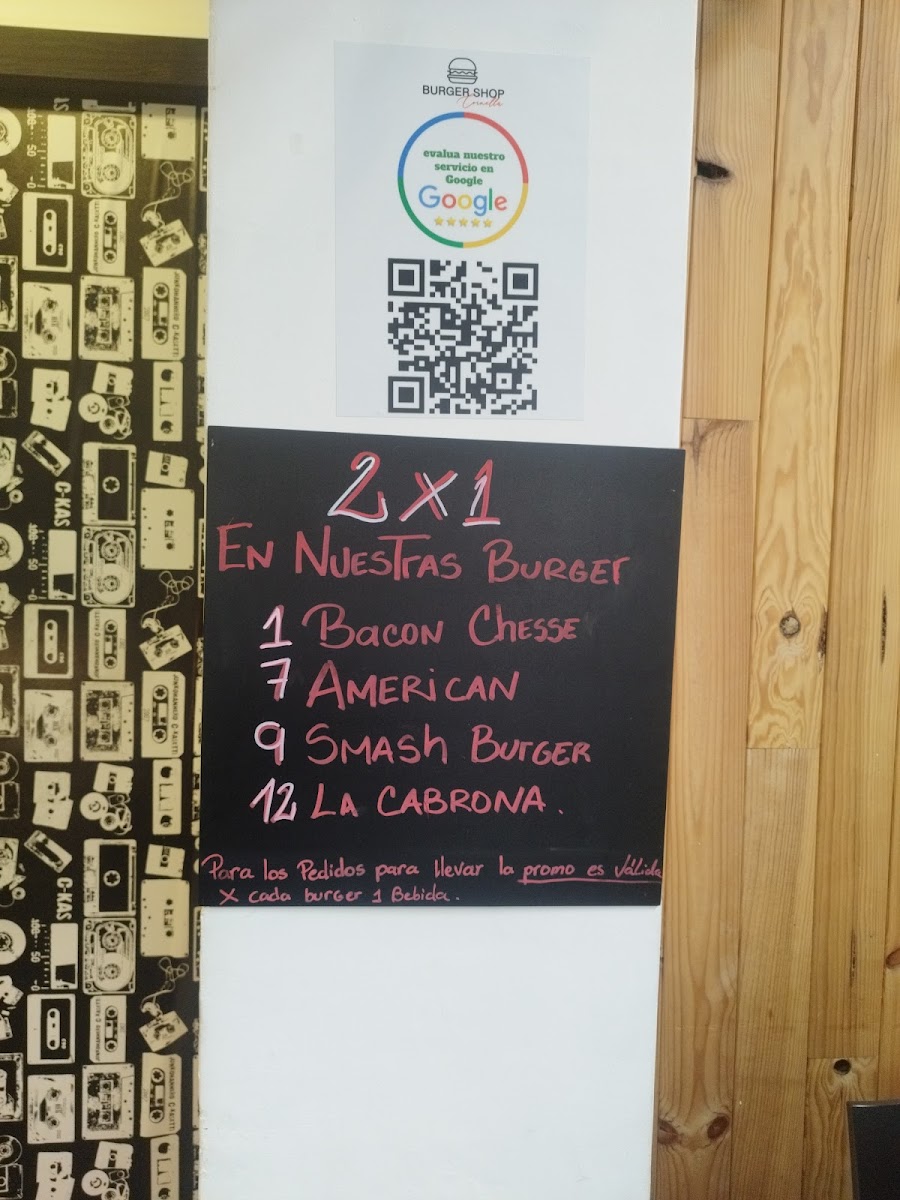 BURGER SHOP
Crinella
evalua nuestro
servicio en
Google
Google
2x1
EN NUESTRAS BURGER
1 BACON CHESSE
7 AMERICAN
9 SMASH BURGER
12 LA CABRONA.
Para los Pedidos para llevar la promo es válida
x cada burger 1 Bebida.
C-KAS
100 50 0
C-KAS
100 50 0